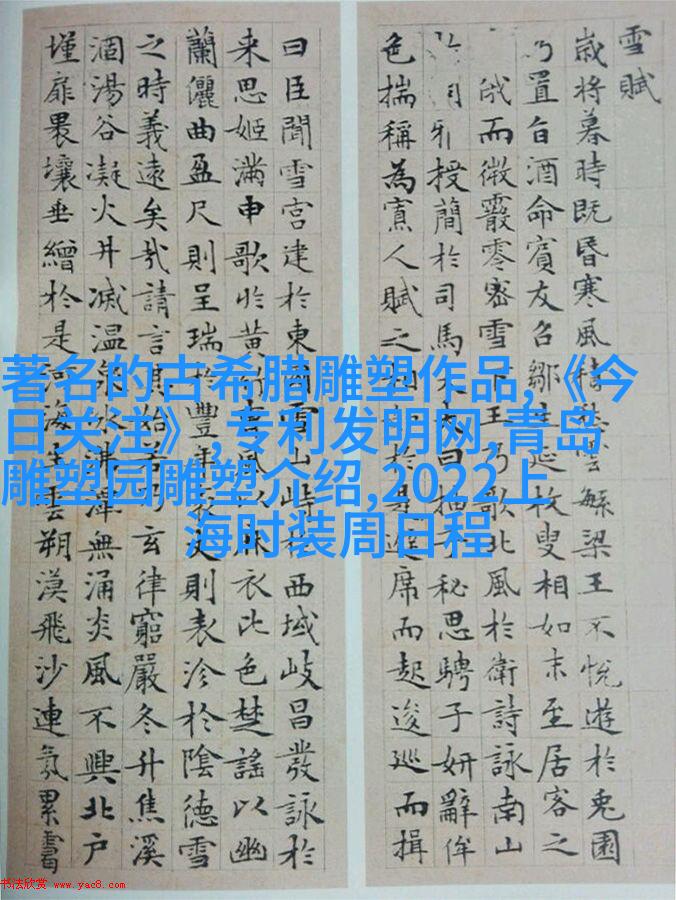 雪賦
歲將暮時既昏寒風積雲繁梁王不悅遊於兔園
乃置旨酒命賓友召鄒生延枚叟相如末至居客之
俄而微霰零密雪下王乃歌北風於衛詩詠南山
雅授簡於司馬大夫曰抽子秘思騁子妍辭侔
色揣稱為寡人賦之相如於是避席而起逡巡而揖
曰臣聞雪宮建於東國雪山峙於西域岐昌發詠於
来思姬滿申歌於黃竹曹風以麻衣比色楚謠以幽
蘭儷曲盈尺則呈瑞於豐年袤丈則表沴於陰德雪
之時義遠矣哉請言其始若乃玄律窮嚴冬升焦溪
涸湯谷凝火井滅温泉冰沸潭無涌炎風不興北户
墐扉裸壤垂繒於是河海生雲朔漠飛沙連氛累靄
著名的古希腊雕塑作品,《今
日关注》,专利发明网,青岛
雕塑园雕塑介绍,2022上
海时装周日程
书法欣赏 www.yac8.com